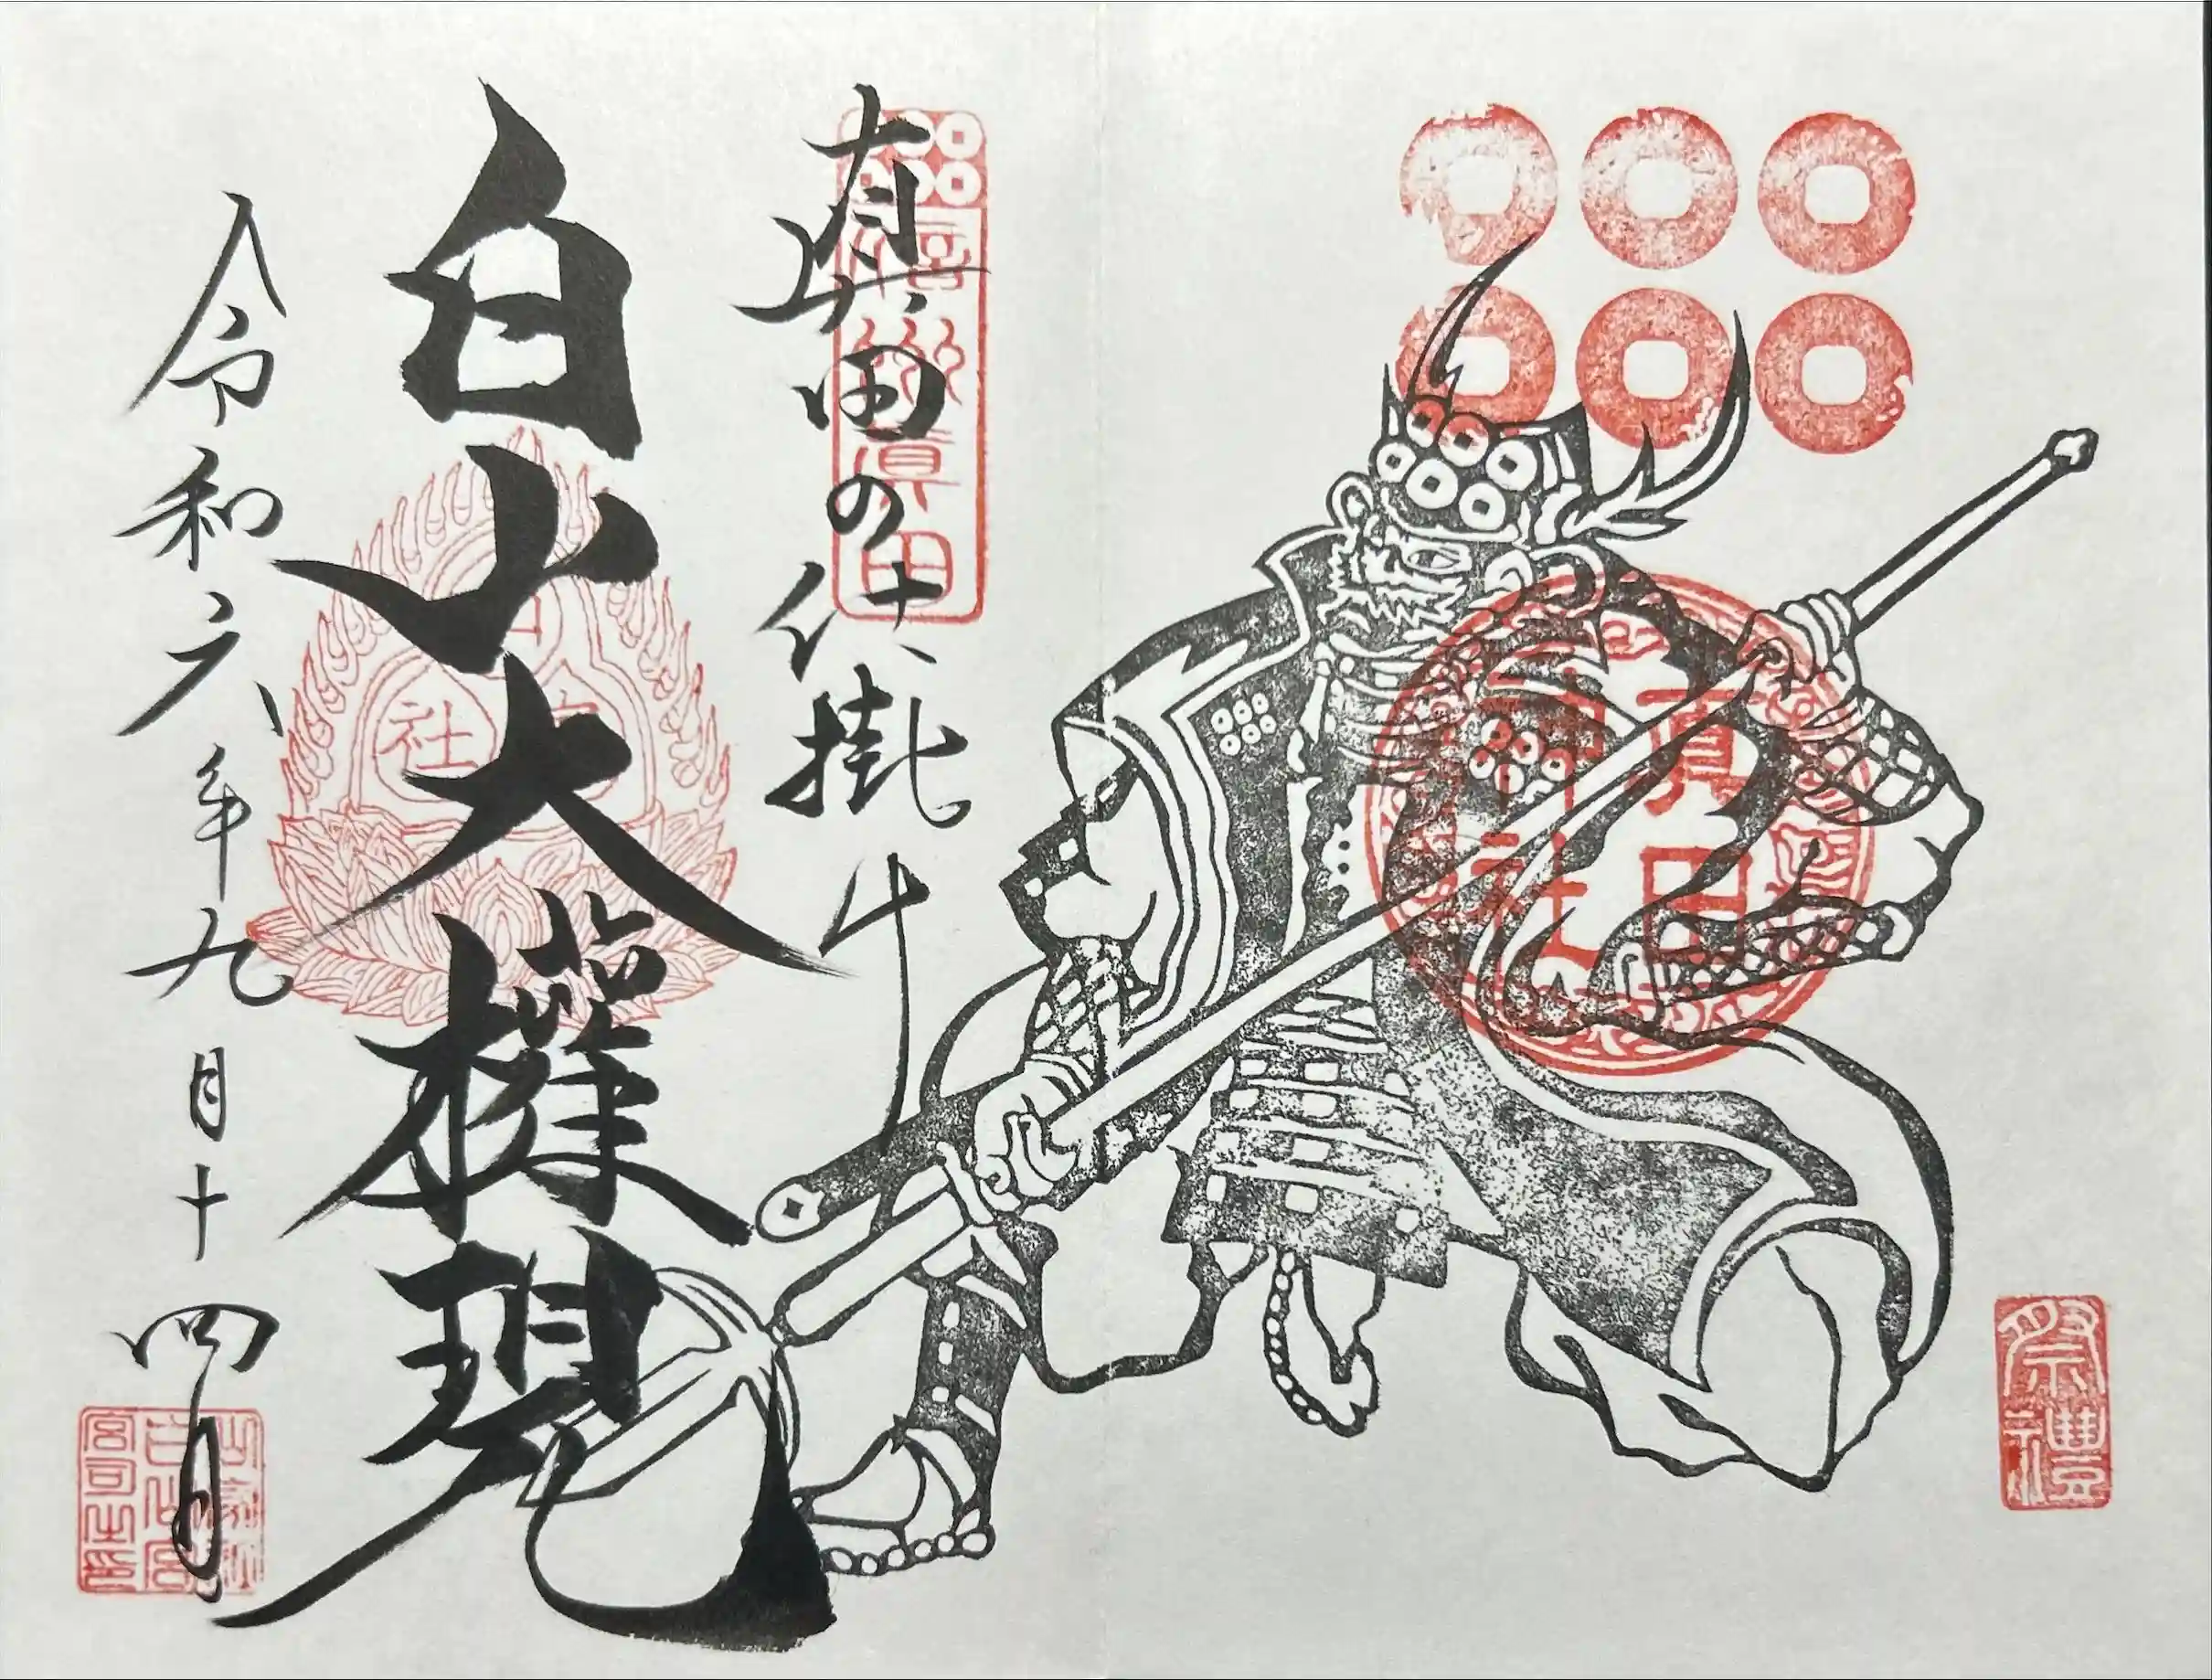 祭禮
眞田
神社
真田の仕掛け
白山大權現
令和六年九月十四日